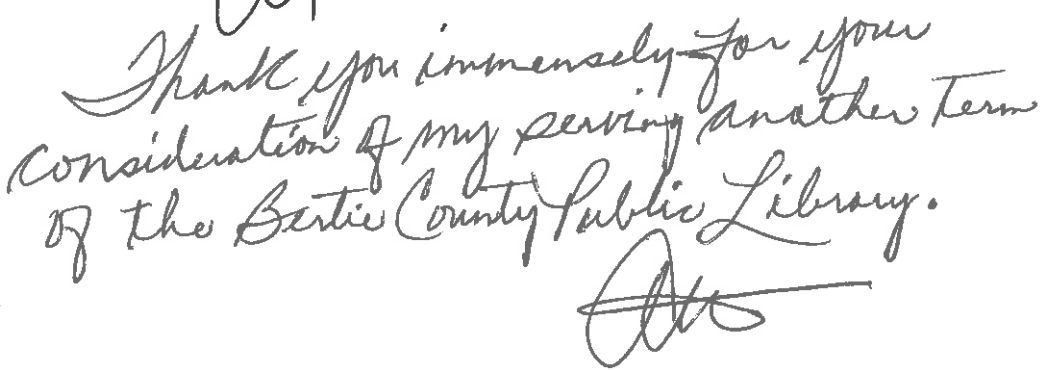 Thank you immensely for your
consideration of my serving another term
of the Bertie County Public Library.